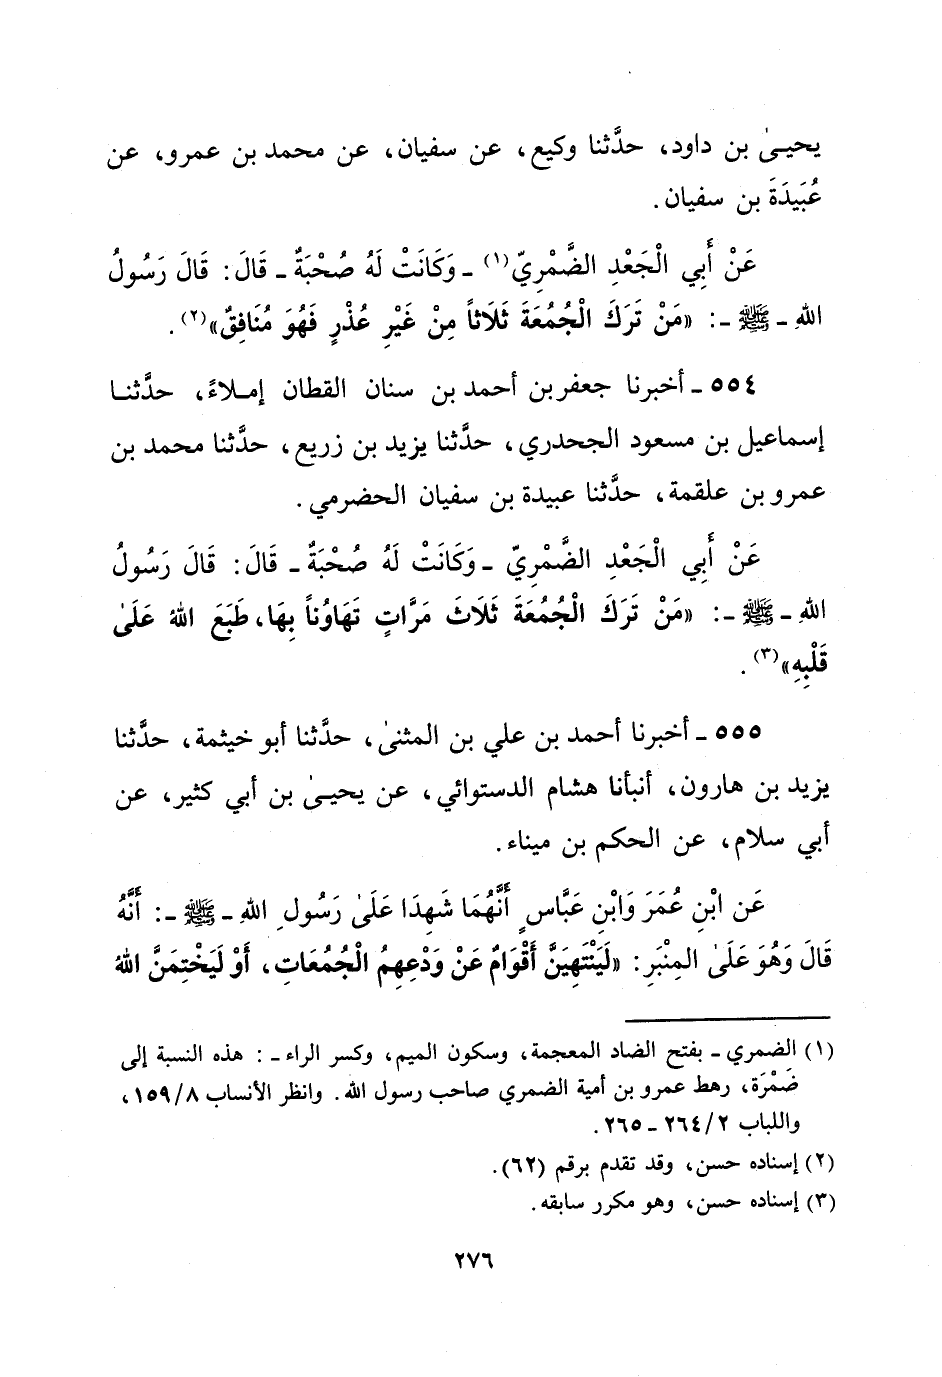 يحيىٰ بن داود، حدَّثنا وكيع، عن سفيان، عن محمد بن عمرو، عن
عُبَيْدَةَ بن سفيان.
عَنْ أَبِي الْجَعْدِ الضَّمْرِيّ(١) ـ وَكَانَتْ لَهُ صُحْبَةٌ ـ قَالَ: قَالَ رَسُولُ
اللهِ ـ ﷺ ـ: «مَنْ تَرَكَ الْجُمُعَةَ ثَلَاثاً مِنْ غَيْرِ عُذْرٍ فَهُوَ مُنَافِقٌ»(٢).
٥٥٤ ـ أخبرنا جعفر بن أحمد بن سنان القطان إملاءً، حدَّثنا
إسماعيل بن مسعود الجحدري، حدَّثنا يزيد بن زريع، حدَّثنا محمد بن
عمرو بن علقمة، حدَّثنا عبيدة بن سفيان الحضرمي.
عَنْ أَبِي الْجَعْدِ الضَّمْرِيّ ـ وَكَانَتْ لَهُ صُحْبَةٌ ـ قَالَ: قَالَ رَسُولُ
اللهِ ـ ﷺ ـ: «مَنْ تَرَكَ الْجُمُعَةَ ثَلَاثَ مَرَّاتٍ تَهَاوُناً بِهَا، طَبَعَ اللهُ عَلَىٰ
قَلْبِهِ»(٣).
٥٥٥ ـ أخبرنا أحمد بن علي بن المثنىٰ، حدَّثنا أبو خيثمة، حدَّثنا
يزيد بن هارون، أنبأنا هشام الدستوائي، عن يحيىٰ بن أبي كثير، عن
أبي سلام، عن الحكم بن ميناء.
عَن ابْنِ عُمَرَ وَابْنِ عَبَّاسٍ أَنَّهُمَا شَهِدَا عَلَىٰ رَسُولِ اللهِ ـ ﷺ ـ: أَنَّهُ
قَالَ وَهُوَ عَلَىٰ المِنْبَرِ: «لَيَنْتَهِيَنَّ أَقْوَامٌ عَنْ وَدْعِهِمُ الْجُمُعَاتِ، أَوْ لَيَخْتِمَنَّ اللهُ
(١) الضمري ـ بفتح الضاد المعجمة، وسكون الميم، وكسر الراء ـ: هذه النسبة إلى
ضَمْرَة، رهط عمرو بن أمية الضمري صاحب رسول الله. وانظر الأنساب ١٥٩/٨،
واللباب ٢٦٤/٢ ـ ٢٦٥.
(٢) إسناده حسن، وقد تقدم برقم (٦٢).
(٣) إسناده حسن، وهو مكرر سابقه.
٢٧٦